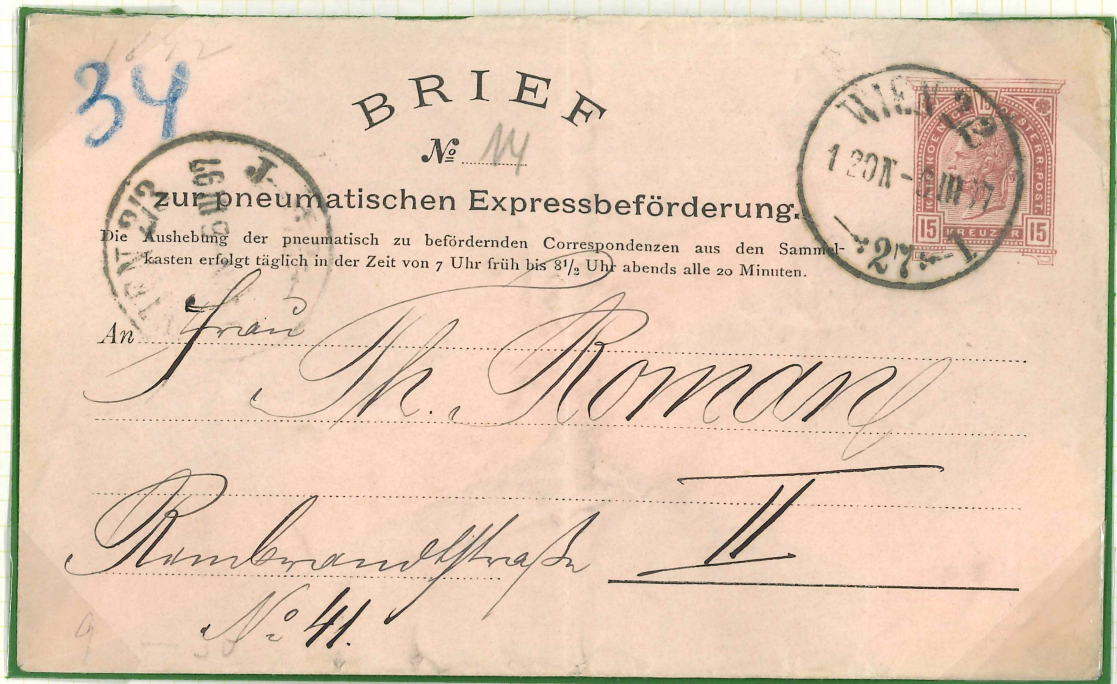 34
BRIEF
№ 14
zur pneumatischen Expressbeförderung.
Die Aushebung der pneumatisch zu befördernden Correspondenzen aus den Sammel-
kasten erfolgt täglich in der Zeit von 7 Uhr früh bis 8½ Uhr abends alle 20 Minuten.
WIEN 2/2
1 20N
27 1
KAIS. KOENIGL. OESTERR. POST.
15 KREUZER 15
WIEN 2/2
97
An Frau
Th. Roman
II
Rembrandtstraße
No 41.